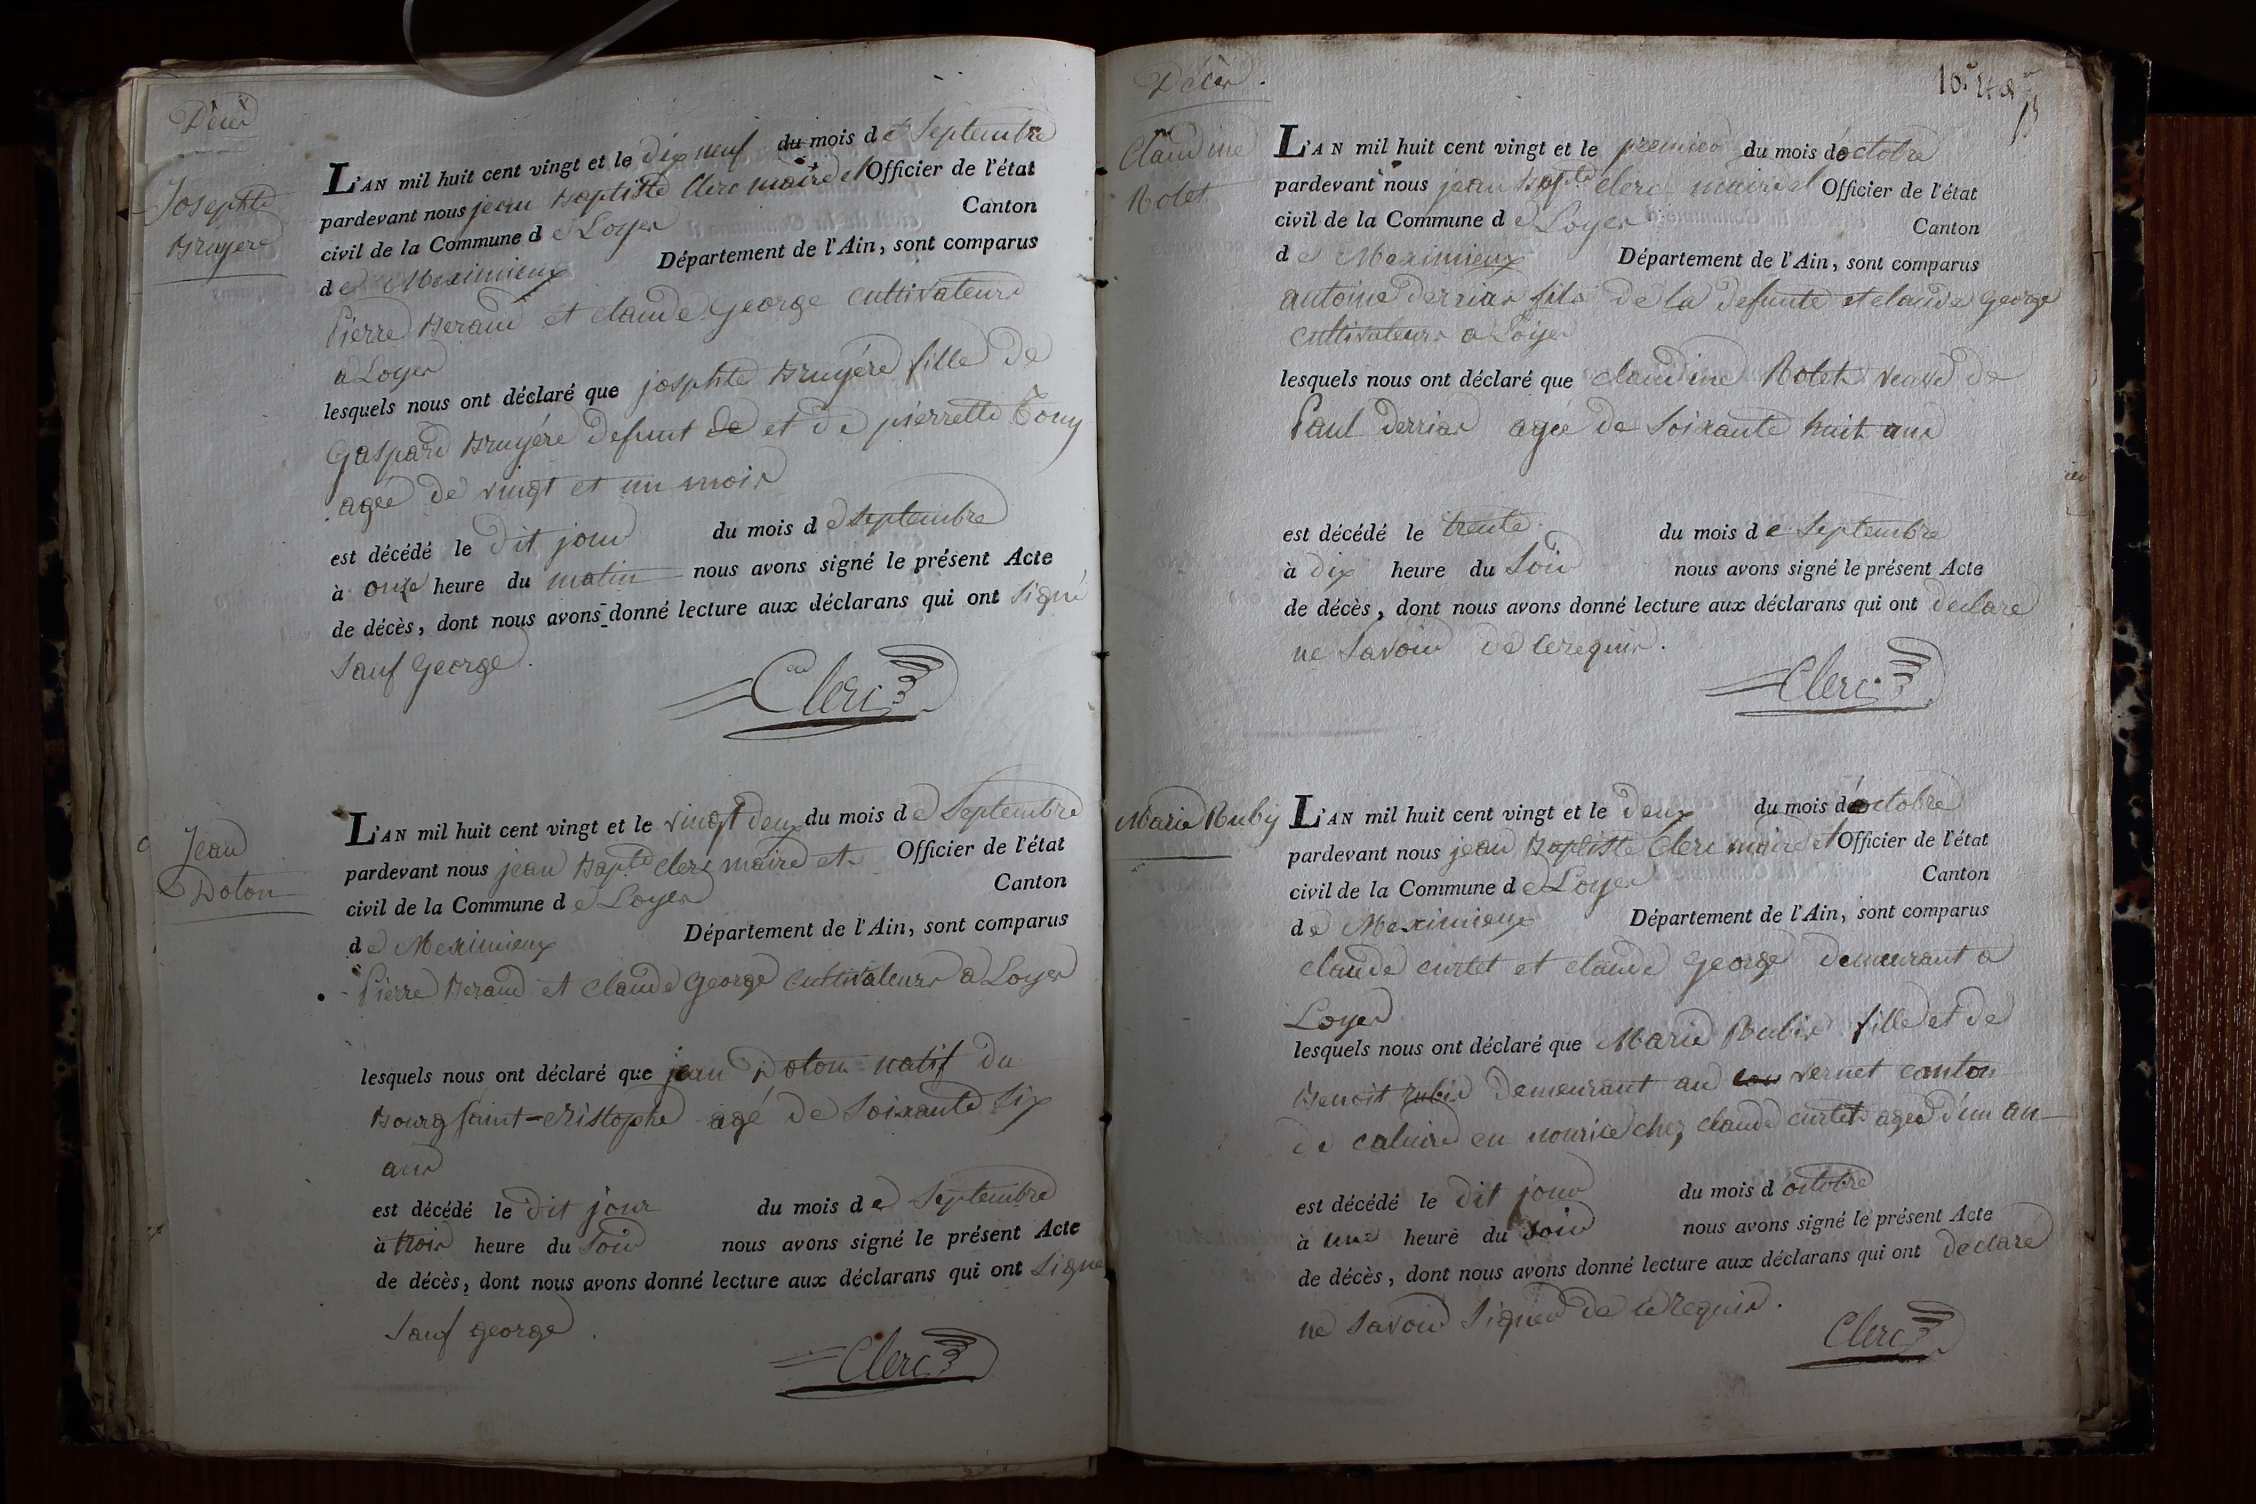 Décès
Josephte
Bruyere
L'AN mil huit cent vingt et le dix neuf du mois de Septembre
pardevant nous jean Baptiste Clerc maire et Officier de l'état
civil de la Commune de Loyes Canton
de Meximieux Département de l'Ain, sont comparus
Pierre Beraud et claude George cultivateurs
a Loyes
lesquels nous ont déclaré que josphte Bruyére fille de
Gaspard Bruyére defunt de et de pierrette
agée de vingt et un mois
est décédé le dit jour du mois de Septembre
à onze heure du matin nous avons signé le présent Acte
de décès, dont nous avons donné lecture aux déclarans qui ont signé
Sauf George.
Clerc
Jean
Doton
L'AN mil huit cent vingt et le vingt deux du mois de Septembre
pardevant nous jean Bapte clerc maire et Officier de l'état
civil de la Commune de Loyes Canton
de Meximieux Département de l'Ain, sont comparus
Pierre Beraud et Claude George Cultivateurs a Loyes
lesquels nous ont déclaré que jean Doton natif du
Bourg Saint-cristophe agé de Soixante Six
ans
est décédé le dit jour du mois de Septembre
à trois heure du Soir nous avons signé le présent Acte
de décès, dont nous avons donné lecture aux déclarans qui ont signé
Sauf george.
Clerc
Décès.
Claudine
Rolet
L'AN mil huit cent vingt et le premier du mois d'octobre
pardevant nous jean bapte clerc maire et Officier de l'état
civil de la Commune de Loyes Canton
de Meximieux Département de l'Ain, sont comparus
antoine derrias fils de la defunte et claude George
cultivateurs a Loyes
lesquels nous ont déclaré que claudine Rolet veuve de
Paul derrias agée de Soixante huit ans
est décédé le trente du mois de Septembre
à dix heure du Soir nous avons signé le présent Acte
de décès, dont nous avons donné lecture aux déclarans qui ont declaré
ne Savoir de ce requis.
Clerc
Marie Ruby
L'AN mil huit cent vingt et le deux du mois d'octobre
pardevant nous jean Baptiste Clerc maire et Officier de l'état
civil de la Commune de Loyes Canton
de Meximieux Département de l'Ain, sont comparus
claude curtet et claude George demeurant a
Loyes
lesquels nous ont déclaré que Marie Rubis fille et de
Benoit rubis demeurant au vernet canton
de caluire en nourice chez claude curtet agée d'un an
est décédé le dit jour du mois d octobre
à une heure du soir nous avons signé le présent Acte
de décès, dont nous avons donné lecture aux déclarans qui ont declaré
ne Savoir Signer de ce requis.
Clerc